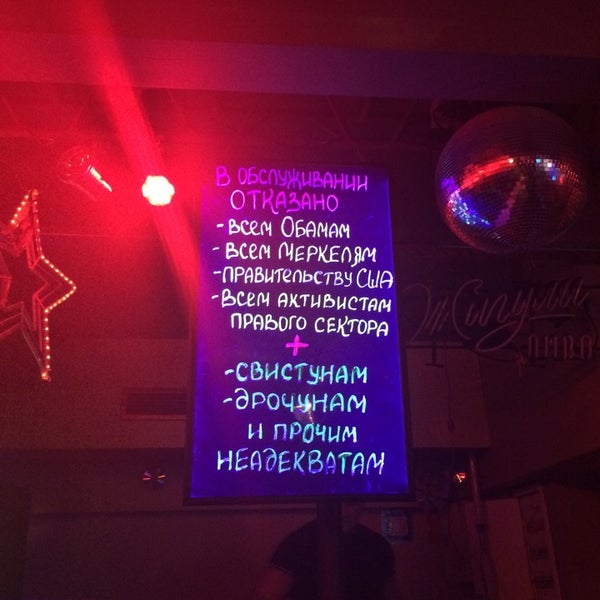 В ОБСЛУЖИВАНИИ
ОТКАЗАНО
-ВСЕМ ОБАМАМ
-ВСЕМ МЕРКЕЛЯМ
-ПРАВИТЕЛЬСТВУ США
-ВСЕМ АКТИВИСТАМ
ПРАВОГО СЕКТОРА
+
-СВИСТУНАМ
-ДРОЧУНАМ
И ПРОЧИМ
НЕАДЕКВАТАМ
Жигули